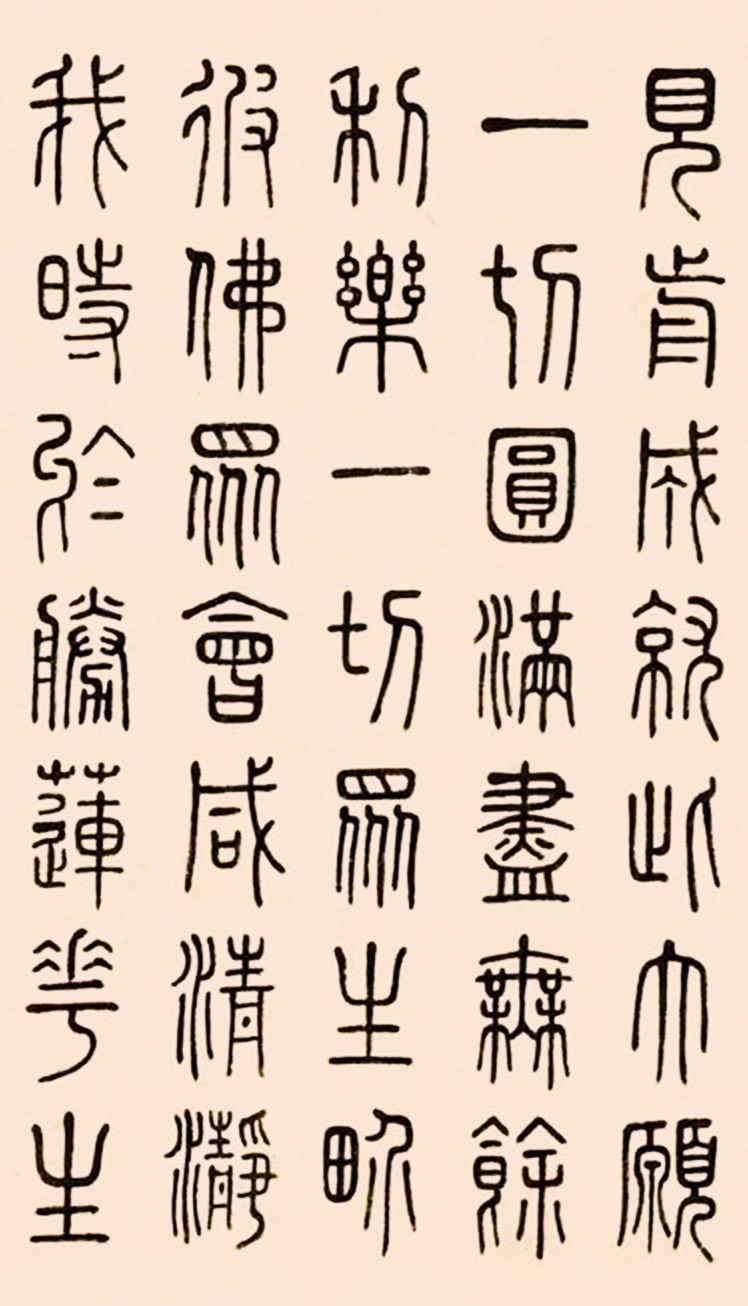 見前成就此大願
一切圓滿盡無餘
利樂一切眾生畍
彼佛眾會咸清瀞
我時於勝蓮華生